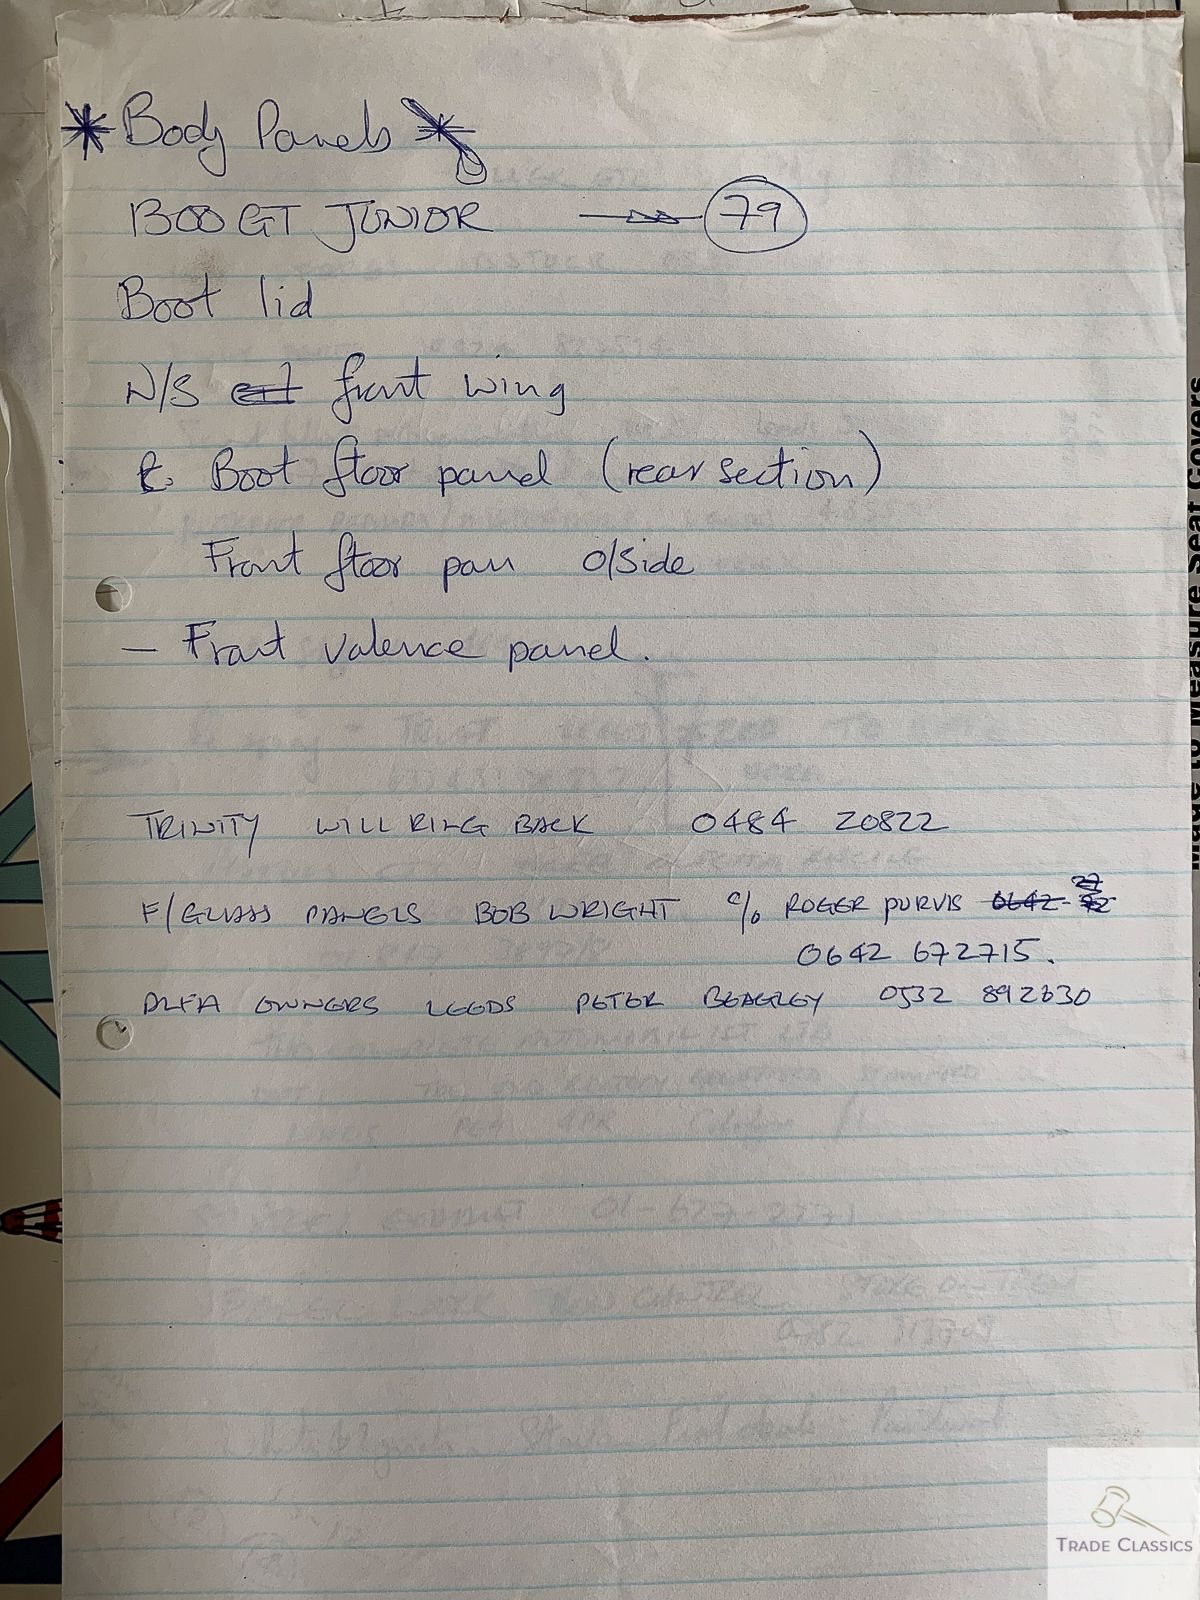 * Body Panels *
1300 GT JUNIOR → 79
Boot lid
N/S front wing
Boot floor panel (rear section)
Front floor pan O/Side
- Front valence panel.
TRINITY WILL RING BACK 0484 20822
F/GLASS PANELS BOB WRIGHT c/o ROGER PURVIS 0642
0642 672715.
ALFA OWNERS LEEDS PETER BEAGLEY 0532 892630
Made to Measure Seat Covers
TRADE CLASSICS